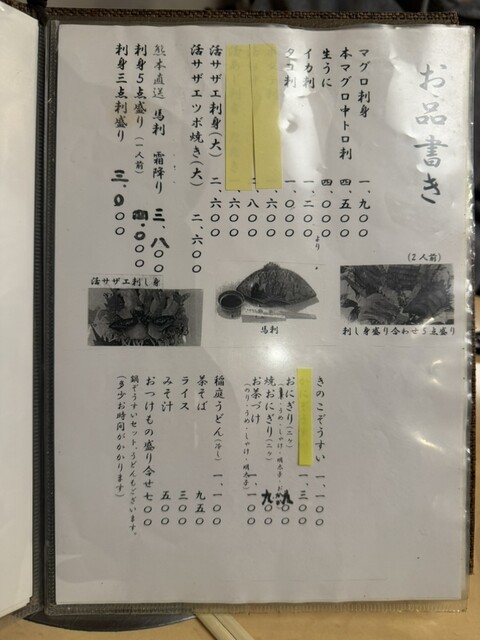 お品書き
マグロ刺身 一、九〇〇
本マグロ中トロ刺 四、五〇〇
生うに 四、〇〇〇
イカ刺 一、二〇〇より
タコ刺 一、〇〇〇
六〇〇
八〇〇
六〇〇
活サザエ刺身(大) 二、六〇〇
活サザエツボ焼き(大) 二、六〇〇
熊本直送 馬刺 霜降り 三、八〇〇
刺身5点盛り(一人前) 〇〇〇
刺身三点刺盛り 三、〇〇〇
(2人前)
刺し身盛り合わせ5点盛り
馬刺
活サザエ刺し身
きのこぞうすい 一、一〇〇
一、三〇〇
おにぎり(二ヶ) 九〇〇
うめ・しゃけ・明太子・お
焼おにぎり(二ヶ) 九〇〇
お茶づけ 一、一〇〇
(のり・うめ・しゃけ・明太子)
稲庭うどん(冷し) 一、一〇〇
茶そば 九五〇
ライス 三〇〇
みそ汁 五〇〇
おつけもの盛り合せ 七〇〇
鍋ぞうすいセット、うどんもございます。
(多少お時間がかかります)